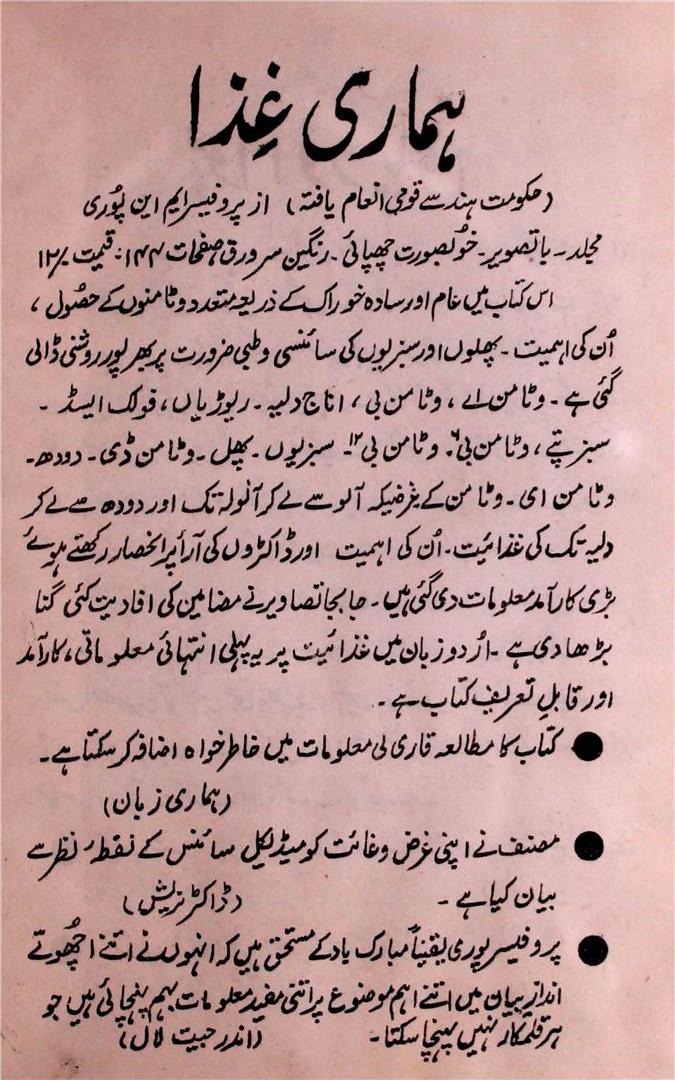 ہماری غِذا
(حکومت ہند سے قومی انعام یافتہ) از پروفیسر ایم این پُوری
مجلد۔ باتصویر۔ خوبصورت چھپائی۔ رنگین سرورق، صفحات ۱۴۴: قیمت ۱۲/
اس کتاب میں عام اور سادہ خوراک کے ذریعہ متعدد وٹامنوں کے حصُول،
اُن کی اہمیت۔ پھلوں اور سبزیوں کی سائنسی و طبی ضرورت پر بھرپور روشنی ڈالی
گئی ہے۔ وٹامن اے، وٹامن بی، اناج دلیہ۔ ریوڑیاں، فولک ایسڈ۔
سبز پتے، وٹامن بی۶۔ وٹامن بی۱۲۔ سبزیوں۔ پھل۔ وٹامن ڈی۔ دودھ۔
وٹامن ای۔ وٹامن کے غرضیکہ آلو سے لے کر آلولہ تک اور دودھ سے لے کر
دلیہ تک کی غذائیت۔ اُن کی اہمیت اور ڈاکٹروں کی آرأ پر انحصار رکھتے ہوئے
بڑی کارآمد معلومات دی گئی ہیں۔ جابجا تصاویر نے مضامین کی افادیت کئی گنا
بڑھا دی ہے۔ اُردو زبان میں غذائیت پر یہ پہلی انتہائی معلوماتی، کارآمد
اور قابلِ تعریف کتاب ہے۔
● کتاب کا مطالعہ قاری لی معلومات میں خاطر خواہ اضافہ کر سکتا ہے۔
(ہماری زبان)
● مصنف نے اپنی غرض و غائت کو میڈیکل سائنس کے نقطۂ نظر سے
بیان کیا ہے۔ (ڈاکٹر نریش)
● پروفیسر پوری یقیناً مبارک باد کے مستحق ہیں کہ انہوں نے اتنے اچھُوتے
اندازِ بیان میں اتنے اہم موضوع پر اتنی مفید معلومات بہم پہنچائی ہیں جو
ہر قلمکار نہیں پہنچا سکتا۔ (اندر جیت لال)